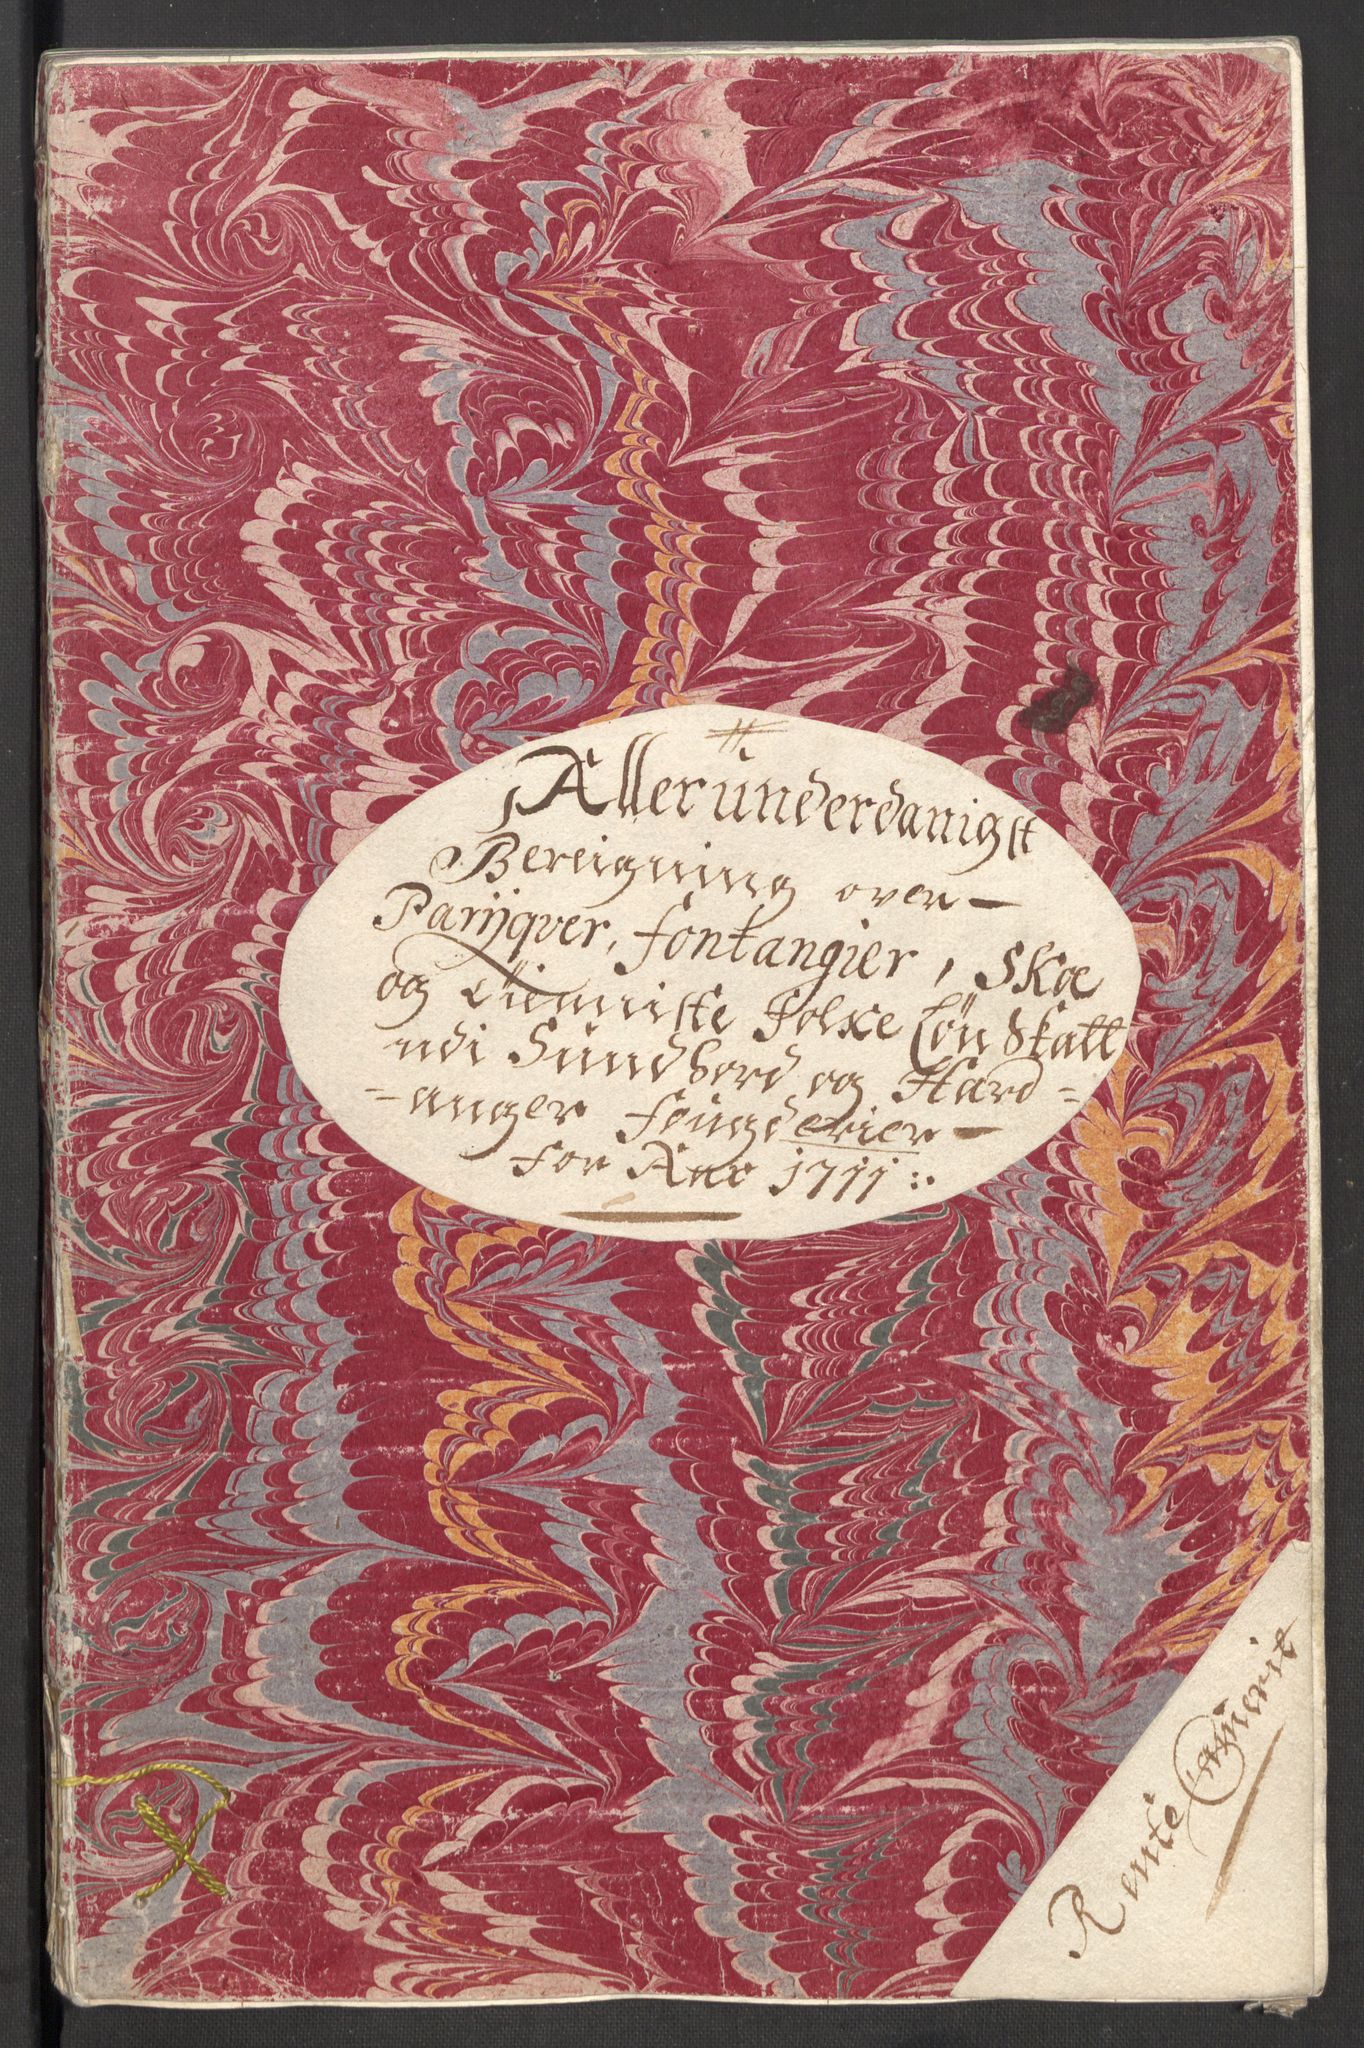 Alleründerdanigst
Beregning over-
Parÿqver, fontangier, Skoe
og tienniste Folkes Løn Skatt
udi Sundhord og Hard=
-anger fougderier-
for Año 1711:.
Rente Camerit